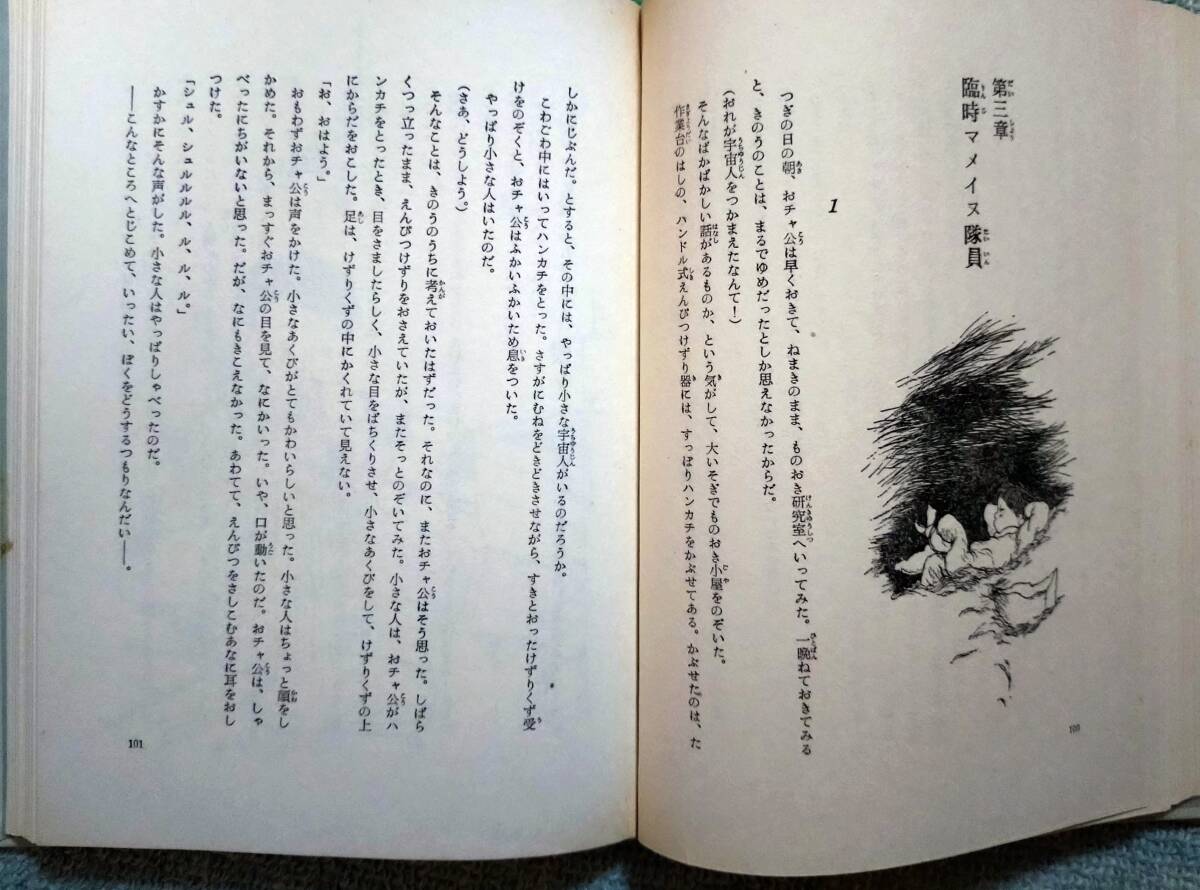 第三章
臨時マメイヌ隊員
1
つぎの日の朝、おチャ公は早くおきて、ねまきのまま、ものおき研究室へいってみた。一晩ねておきてみる
と、きのうのことは、まるでゆめだったとしか思えなかったからだ。
(おれが宇宙人をつかまえたなんて!)
そんなばかばかしい話があるものか、という気がして、大いそぎでものおき小屋をのぞいた。
作業台のはしの、ハンドル式えんぴつけずり器には、すっぽりハンカチをかぶせてある。かぶせたのは、た
100
しかにじぶんだ。とすると、その中には、やっぱり小さな宇宙人がいるのだろうか。
こわごわ中にはいってハンカチをとった。さすがにむねをどきどきさせながら、すきとおったけずりくず受
けをのぞくと、おチャ公はふかいふかいため息をついた。
やっぱり小さな人はいたのだ。
(さあ、どうしよう。)
そんなことは、きのうのうちに考えておいたはずだった。それなのに、またおチャ公はそう思った。しばら
くつっ立ったまま、えんぴつけずりをおさえていたが、またそっとのぞいてみた。小さな人は、おチャ公がハ
ンカチをとったとき、目をさましたらしく、小さな目をぱちくりさせ、小さなあくびをして、けずりくずの上
にからだをおこした。足は、けずりくずの中にかくれていて見えない。
「お、おはよう。」
おもわずおチャ公は声をかけた。小さなあくびがとてもかわいらしいと思った。小さな人はちょっと顔をし
かめた。それから、まっすぐおチャ公の目を見て、なにかいった。いや、口が動いたのだ。おチャ公は、しゃ
べったにちがいないと思った。だが、なにもきこえなかった。あわてて、えんぴつをさしこむあなに耳をおし
つけた。
「シュル、シュルルルル、ル、ル、ル。」
かすかにそんな声がした。小さな人はやっぱりしゃべったのだ。
――こんなところへとじこめて、いったい、ぼくをどうするつもりなんだい――。
101